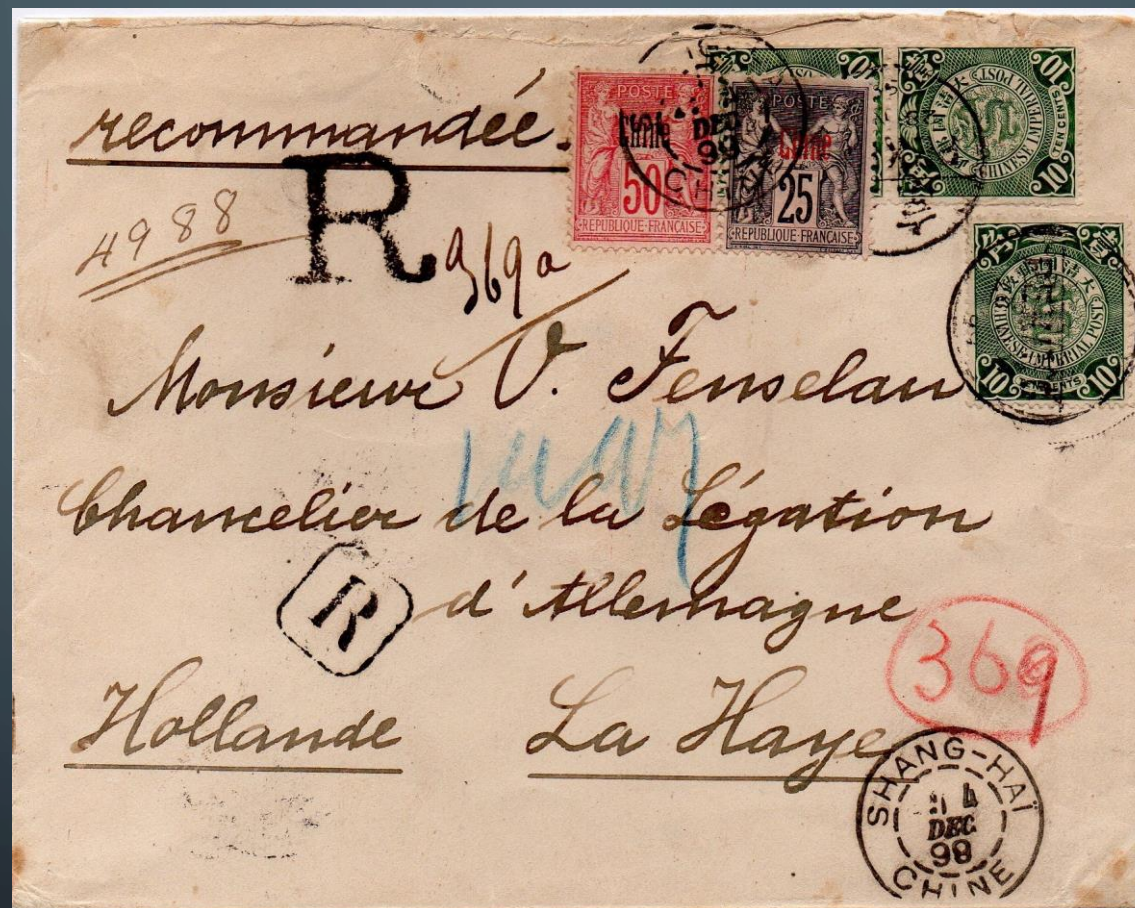 recommandée.
R
4988
369a
POSTE
Chine
50
REPUBLIQUE FRANÇAISE
POSTE
Chine
25
REPUBLIQUE FRANÇAISE
DEC
98
CHINE
10
10
大清國郵政
CHINESE IMPERIAL POST
10
TEN CENTS
大清國郵政
CHINESE IMPERIAL POST
10
CENTS
10
Monsieur O. Fenselau
Chancelier de la Légation
d'Allemagne
R
369
Hollande La Haye
SHANG-HAÏ
DEC
98
CHINE